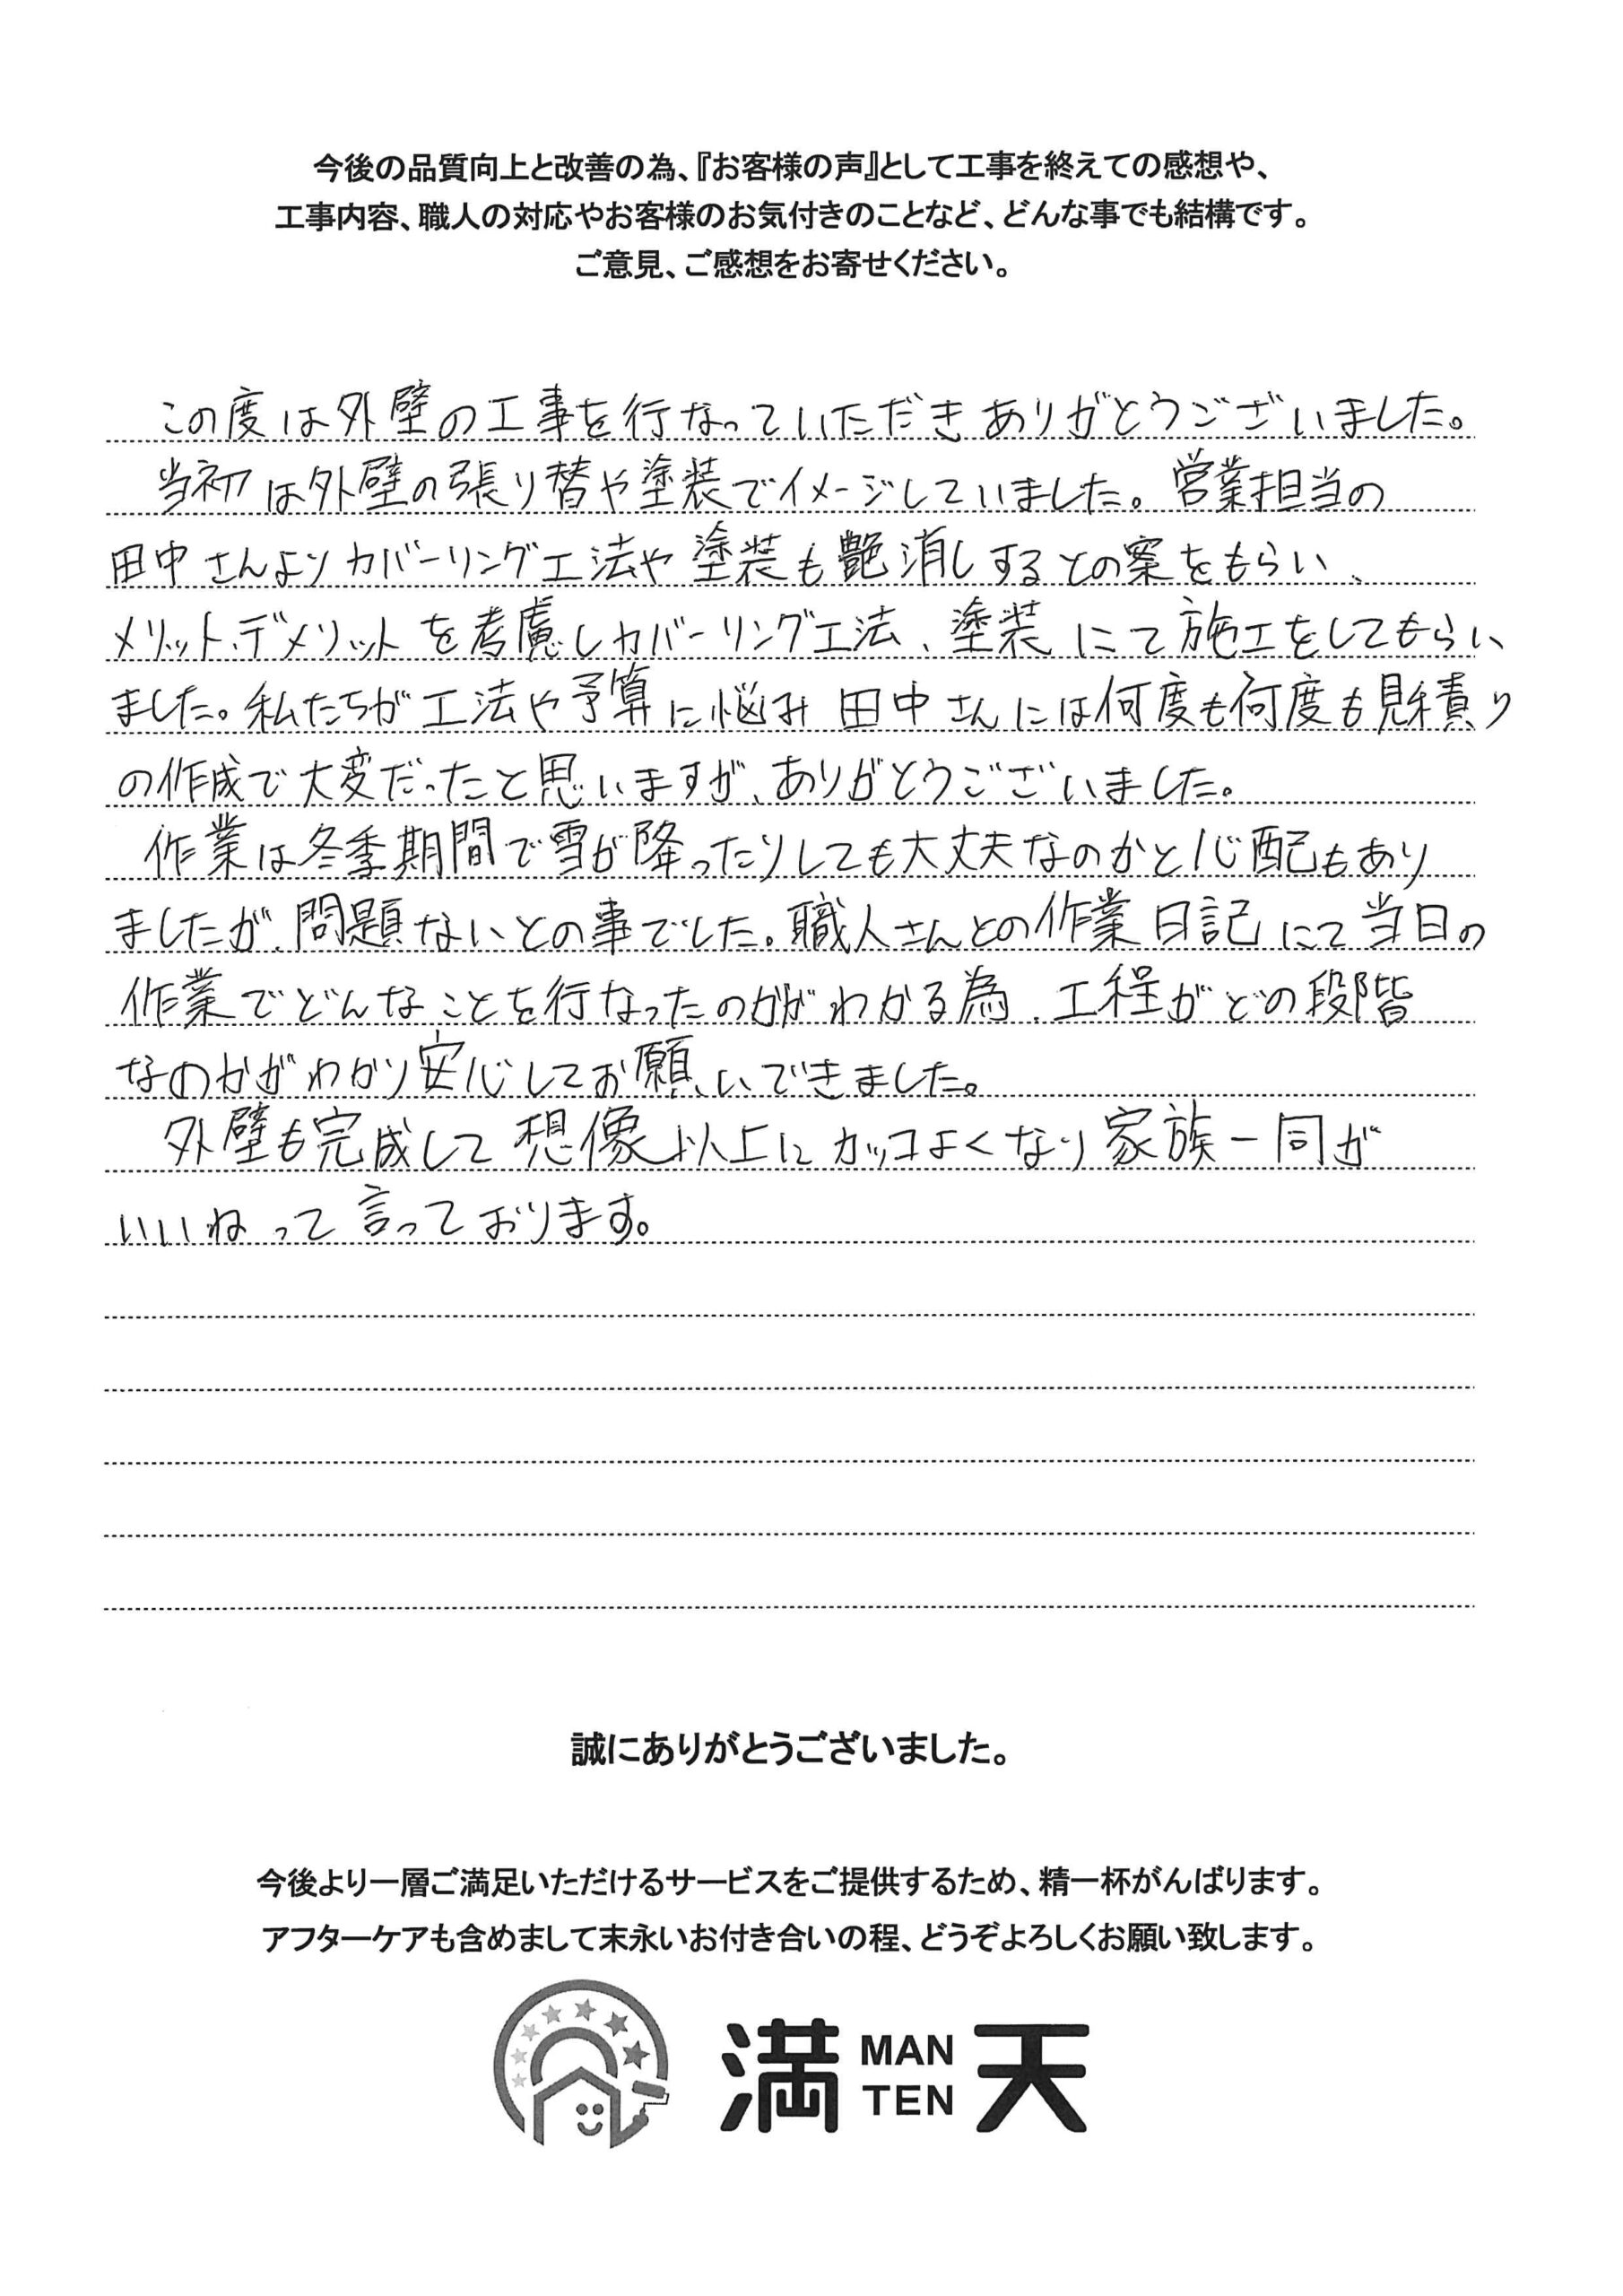 今後の品質向上と改善の為、『お客様の声』として工事を終えての感想や、
工事内容、職人の対応やお客様のお気付きのことなど、どんな事でも結構です。
ご意見、ご感想をお寄せください。
この度は外壁の工事を行なっていただきありがとうございました。
当初は外壁の張り替や塗装でイメージしていました。営業担当の
田中さんよりカバーリング工法や塗装も艶消しするとの案をもらい、
メリット、デメリットを考慮しカバーリング工法、塗装にて施工をしてもらい
ました。私たちが工法や予算に悩み田中さんには何度も何度も見積り
の作成で大変だったと思いますが、ありがとうございました。
作業は冬季期間で雪が降ったりしても大丈夫なのかと心配もあり
ましたが、問題ないとの事でした。職人さんとの作業日記にて当日の
作業でどんなことを行なったのかがわかる為、工程がどの段階
なのかがわかり安心してお願いできました。
外壁も完成して想像以上にカッコよくなり家族一同が
いいねって言っております。
誠にありがとうございました。
今後より一層ご満足いただけるサービスをご提供するため、精一杯がんばります。
アフターケアも含めまして末永いお付き合いの程、どうぞよろしくお願い致します。
満 MAN TEN 天